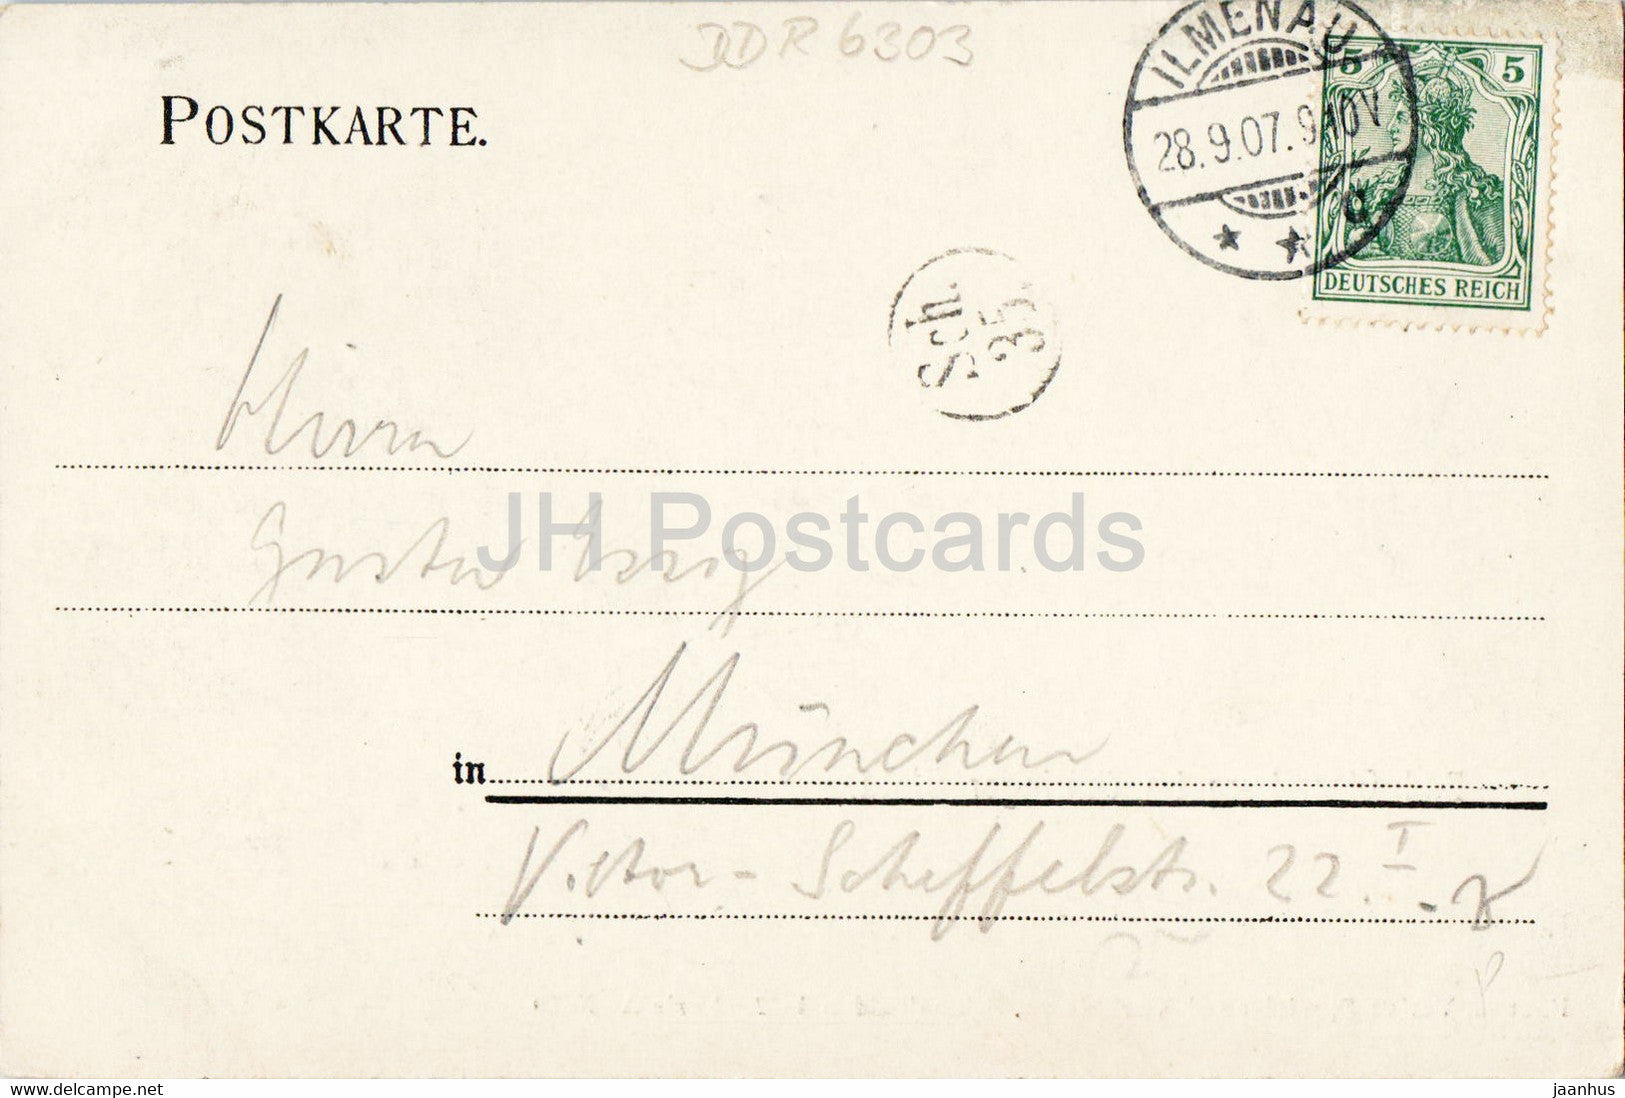 DDR 6303
POSTKARTE.
ILMENAU
28.9.07. 9-10V
a
5 5
DEUTSCHES REICH
Sch.
35
Herrn
Gustav Essig
JH Postcards
in München
Victor-Scheffelstr. 22 I
www.delcampe.net
jaanhus